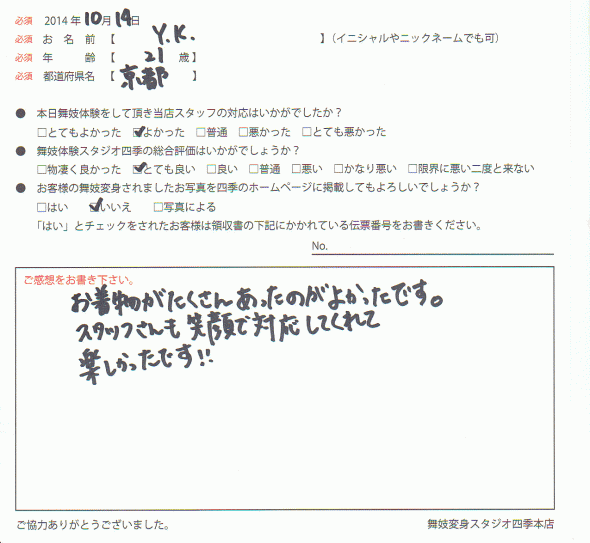 必須 2014年10月19日
必須 お名前【 Y.K. 】(イニシャルやニックネームでも可)
必須 年齢【 21 歳】
必須 都道府県名【 京都 】
● 本日舞妓体験をして頂き当店スタッフの対応はいかがでしたか？
□とてもよかった ☑よかった □普通 □悪かった □とても悪かった
● 舞妓体験スタジオ四季の総合評価はいかがでしょうか？
□物凄く良かった ☑とても良い □良い □普通 □悪い □かなり悪い □限界に悪い二度と来ない
● お客様の舞妓変身されましたお写真を四季のホームページに掲載してもよろしいでしょうか？
□はい ☑いいえ □写真による
「はい」とチェックをされたお客様は領収書の下記にかかれている伝票番号をお書きください。
No.
ご感想をお書き下さい。
お着物がたくさんあったのがよかったです。
スタッフさんも笑顔で対応してくれて
楽しかったです!!
ご協力ありがとうございました。
舞妓変身スタジオ四季本店